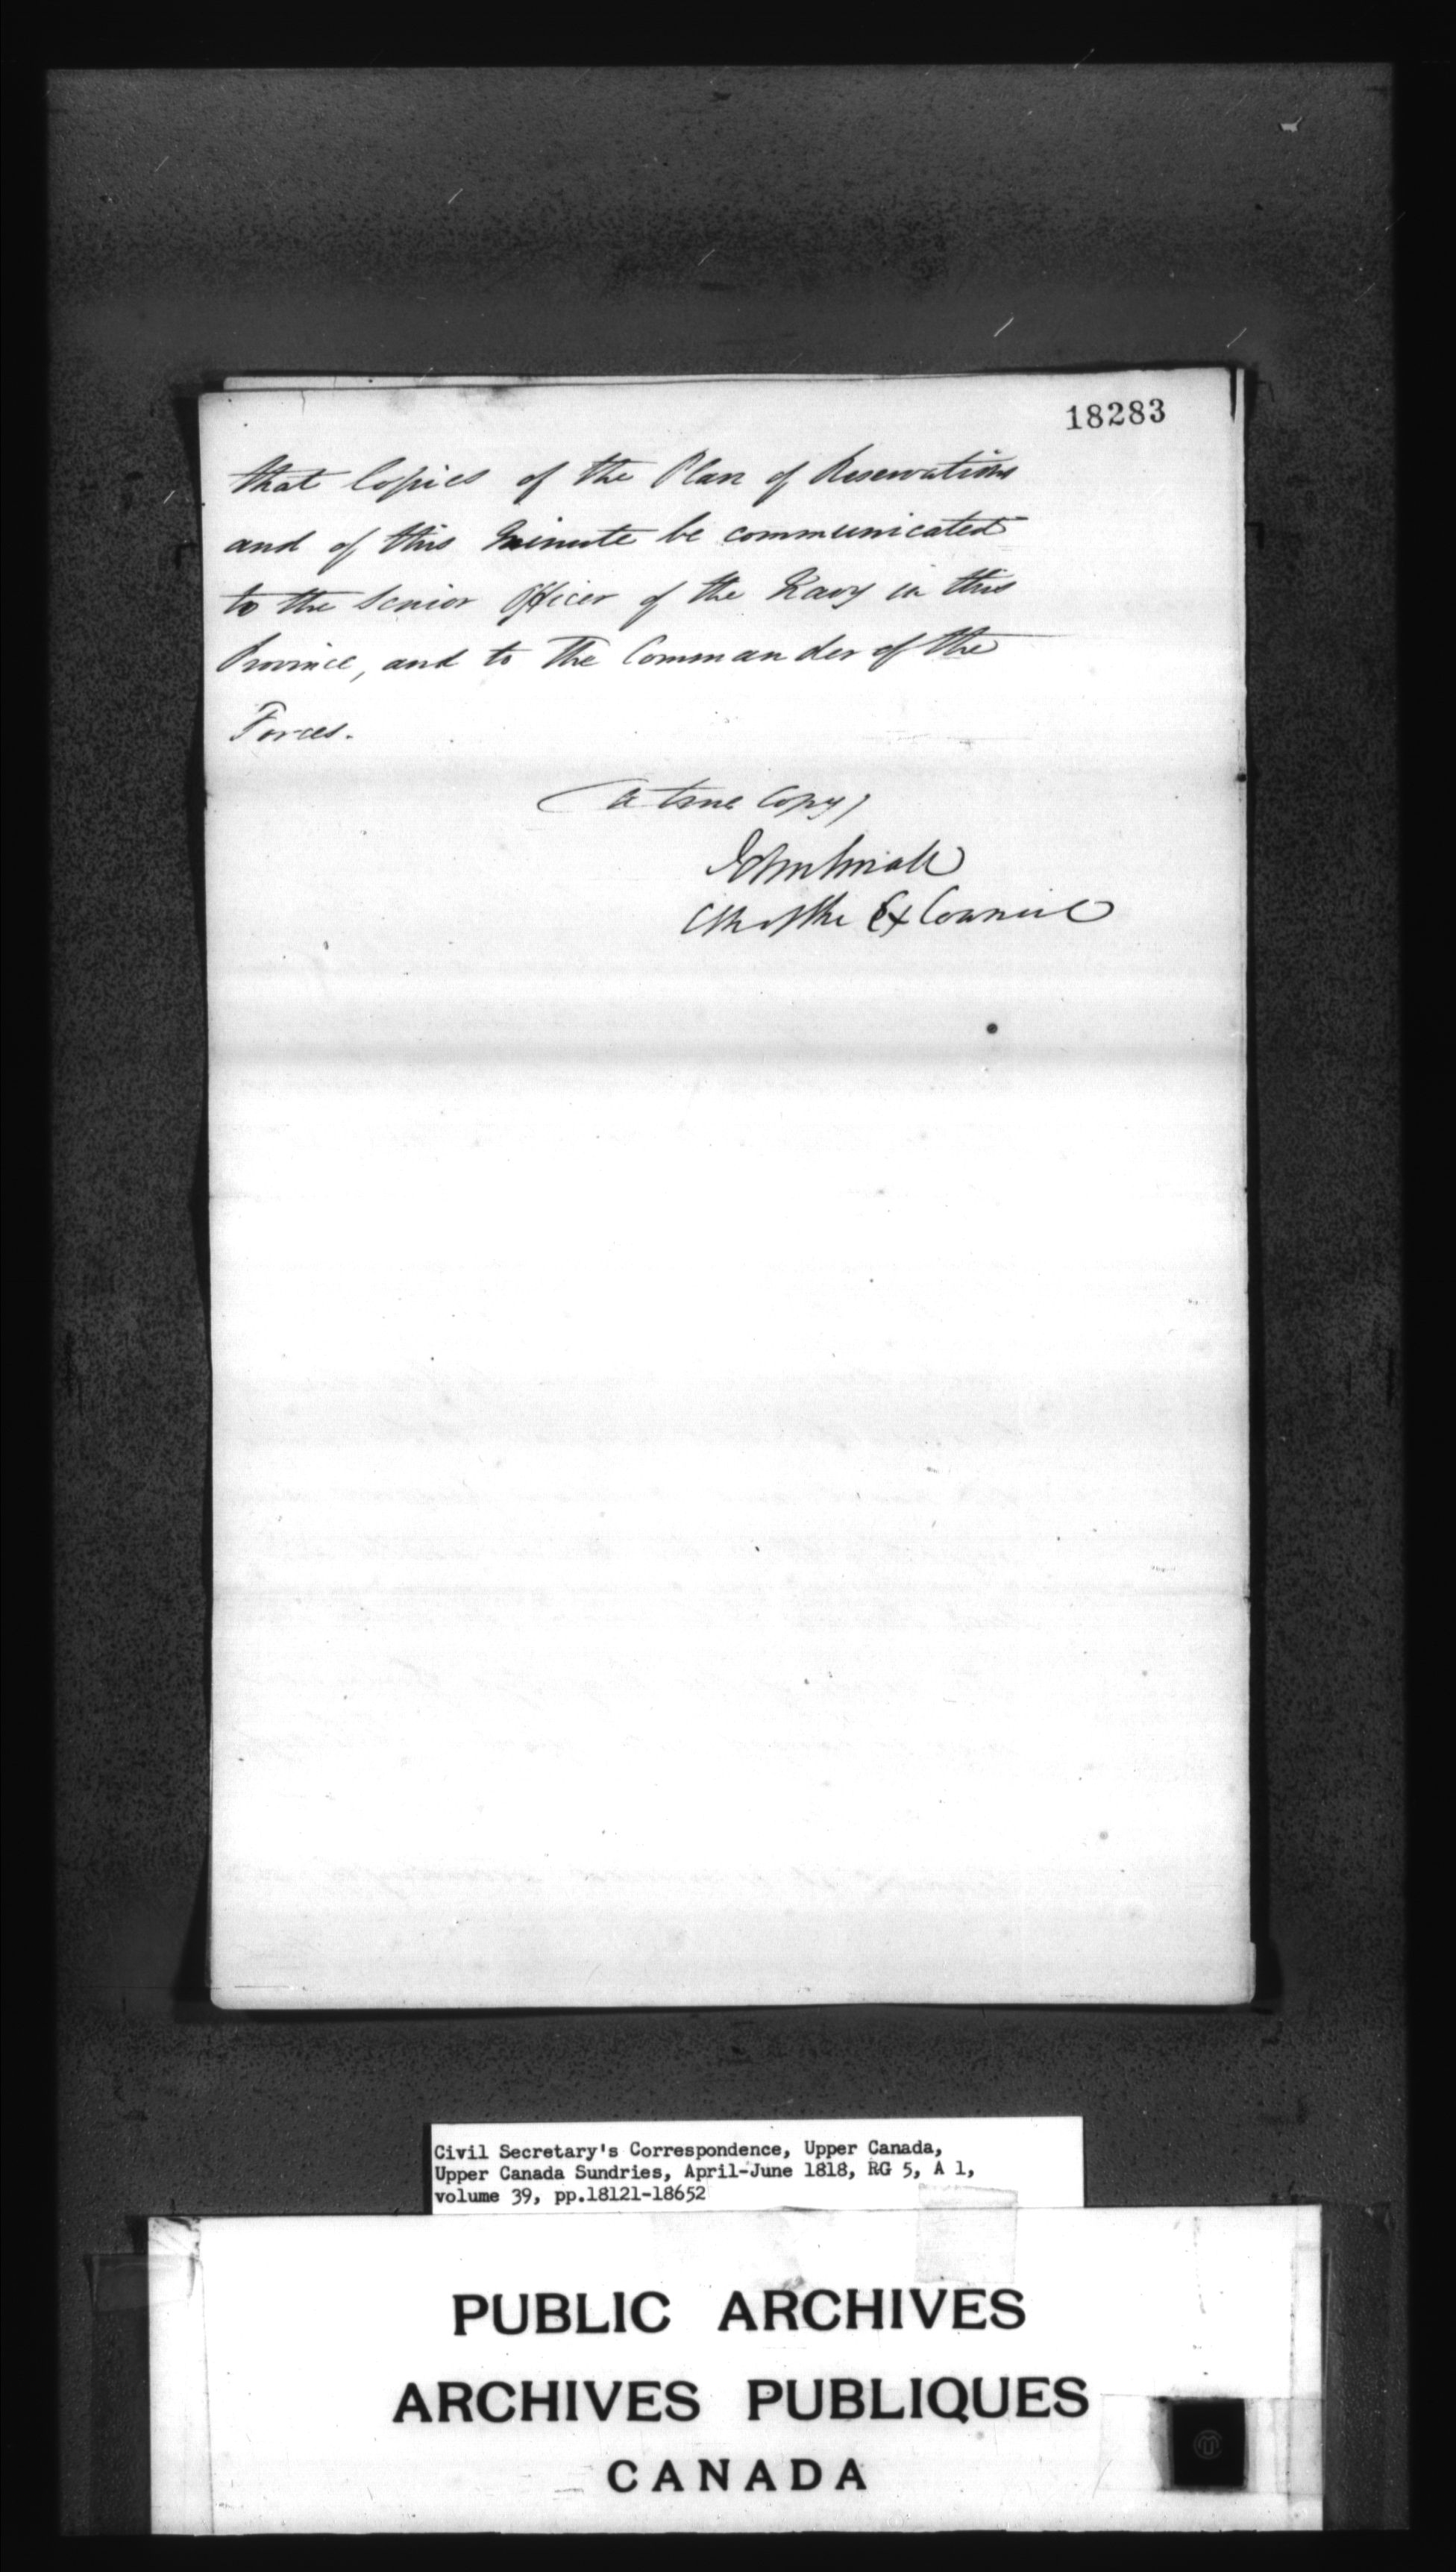 18283
that Copies of the Plan of Reservations
and of this Minute be communicated
to the Senior Officer of the Navy in this
Province, and to The Commander of the
Forces.
A true Copy,
John Small
Clk of the Ex Council
Civil Secretary's Correspondence, Upper Canada,
Upper Canada Sundries, April-June 1818, RG 5, A 1,
volume 39, pp.18121-18652
PUBLIC ARCHIVES
ARCHIVES PUBLIQUES
CANADA